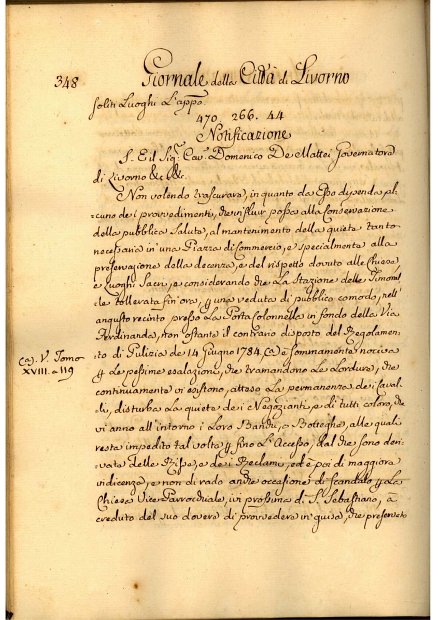 348
Giornale della Città di Livorno
soliti Luoghi L'app.ᵒ
470 266. 44
Notificazione
S. E. il Sig.ʳ Cav. Domenico De Mattei Governatore
di Livorno &c. &c.
Non volendo trascurare, in quanto da Esso dipenda al-
cuno dei provvedimenti, che influir possa alla Conservazione
della pubblica Salute, al mantenimento della quiete tanto
necessaria in una Piazza di Commercio, e specialmente alla
preservazione della decenza, e del rispetto dovuto alle Chiese
e Luoghi Sacri, e considerando che La Stazione delle
le tollerata fin'ora, p una veduta di pubblico comodo, nell'
angusto recinto presso La Porta Colonnella in fondo della Via
Ferdinanda, non ostante il contrario disposto del Regolamen-
to di Pulizia de' 14 Giugno 1784. è sommamente nociva
Ca. V. Tomo
XVIII. a 119
p Le pessime esalazioni, che tramandono Le Lordure, che
continuamente vi esistono, atteso La permanenza dei Caval-
li, disturba La quiete dei Negozianti, e di tutti coloro, che
vi anno all'intorno i Loro Banchi, o Botteghe, alle quali
resta impedito tal volta p fino L'Accesso, dal che sono deri-
vate delle Risse, e dei Reclami, ed è poi di maggiore
vidicenza, e non di rado anche occasione di scandalo p La
Chiesa Vice Parrocchiale, ivi prossima di S. Sebastiano, à
creduto del suo dovere di provvedere in guisa, che preservato